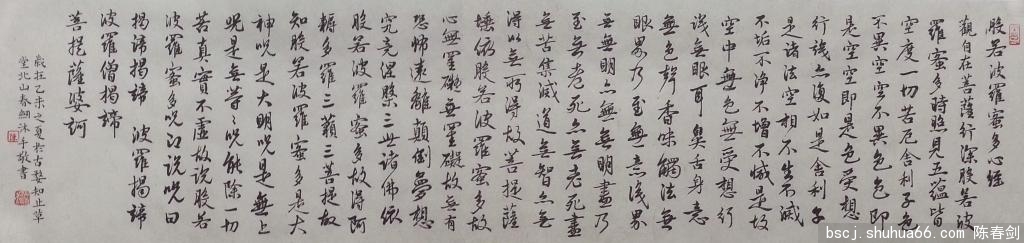 般若波羅蜜多心經
觀自在菩薩行深般若波
羅蜜多時照見五蕴皆
空度一切苦厄舍利子色
不異空空不異色色即
是空空即是色受想
行識亦復如是舍利子
是諸法空相不生不滅
不垢不净不增不減是故
空中無色無受想行
識無眼耳鼻舌身意
無色聲香味觸法無
眼界乃至無意識界
無無明亦無無明盡乃
至無老死亦無老死盡
無苦集滅道無智亦無
得以無所得故菩提薩
埵依般若波羅蜜多故
心無罣礙無罣礙故無有
恐怖遠離顛倒夢想
究竟涅槃三世諸佛依
般若波羅蜜多故得阿
耨多羅三藐三菩提故
知般若波羅蜜多是大
神咒是大明咒是無上
咒是無等等咒能除一切
苦真實不虛故說般若
波羅蜜多咒即說咒曰
揭諦揭諦 波羅揭諦
波羅僧揭諦
菩提薩婆訶
歲在乙未之夏於古整和止草
堂北山春劍沐手敬書
bscj.shuhua66.com 陈春剑